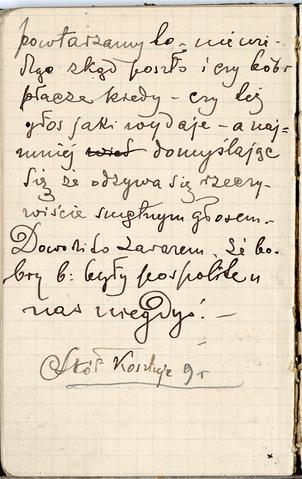 powtarzamy to - nie wie-
dząc skąd poszło i czy bóbr
płacze kiedy - czy też
głos jaki wydaje - a naj-
mniej domyślając
się że odzywa się rzeczy-
wiście smętnym głosem. -
Dowodzi to zarazem, że bo-
bry b: były pospolite u
nas niegdyś! -
Stół Kosztuje 9 r